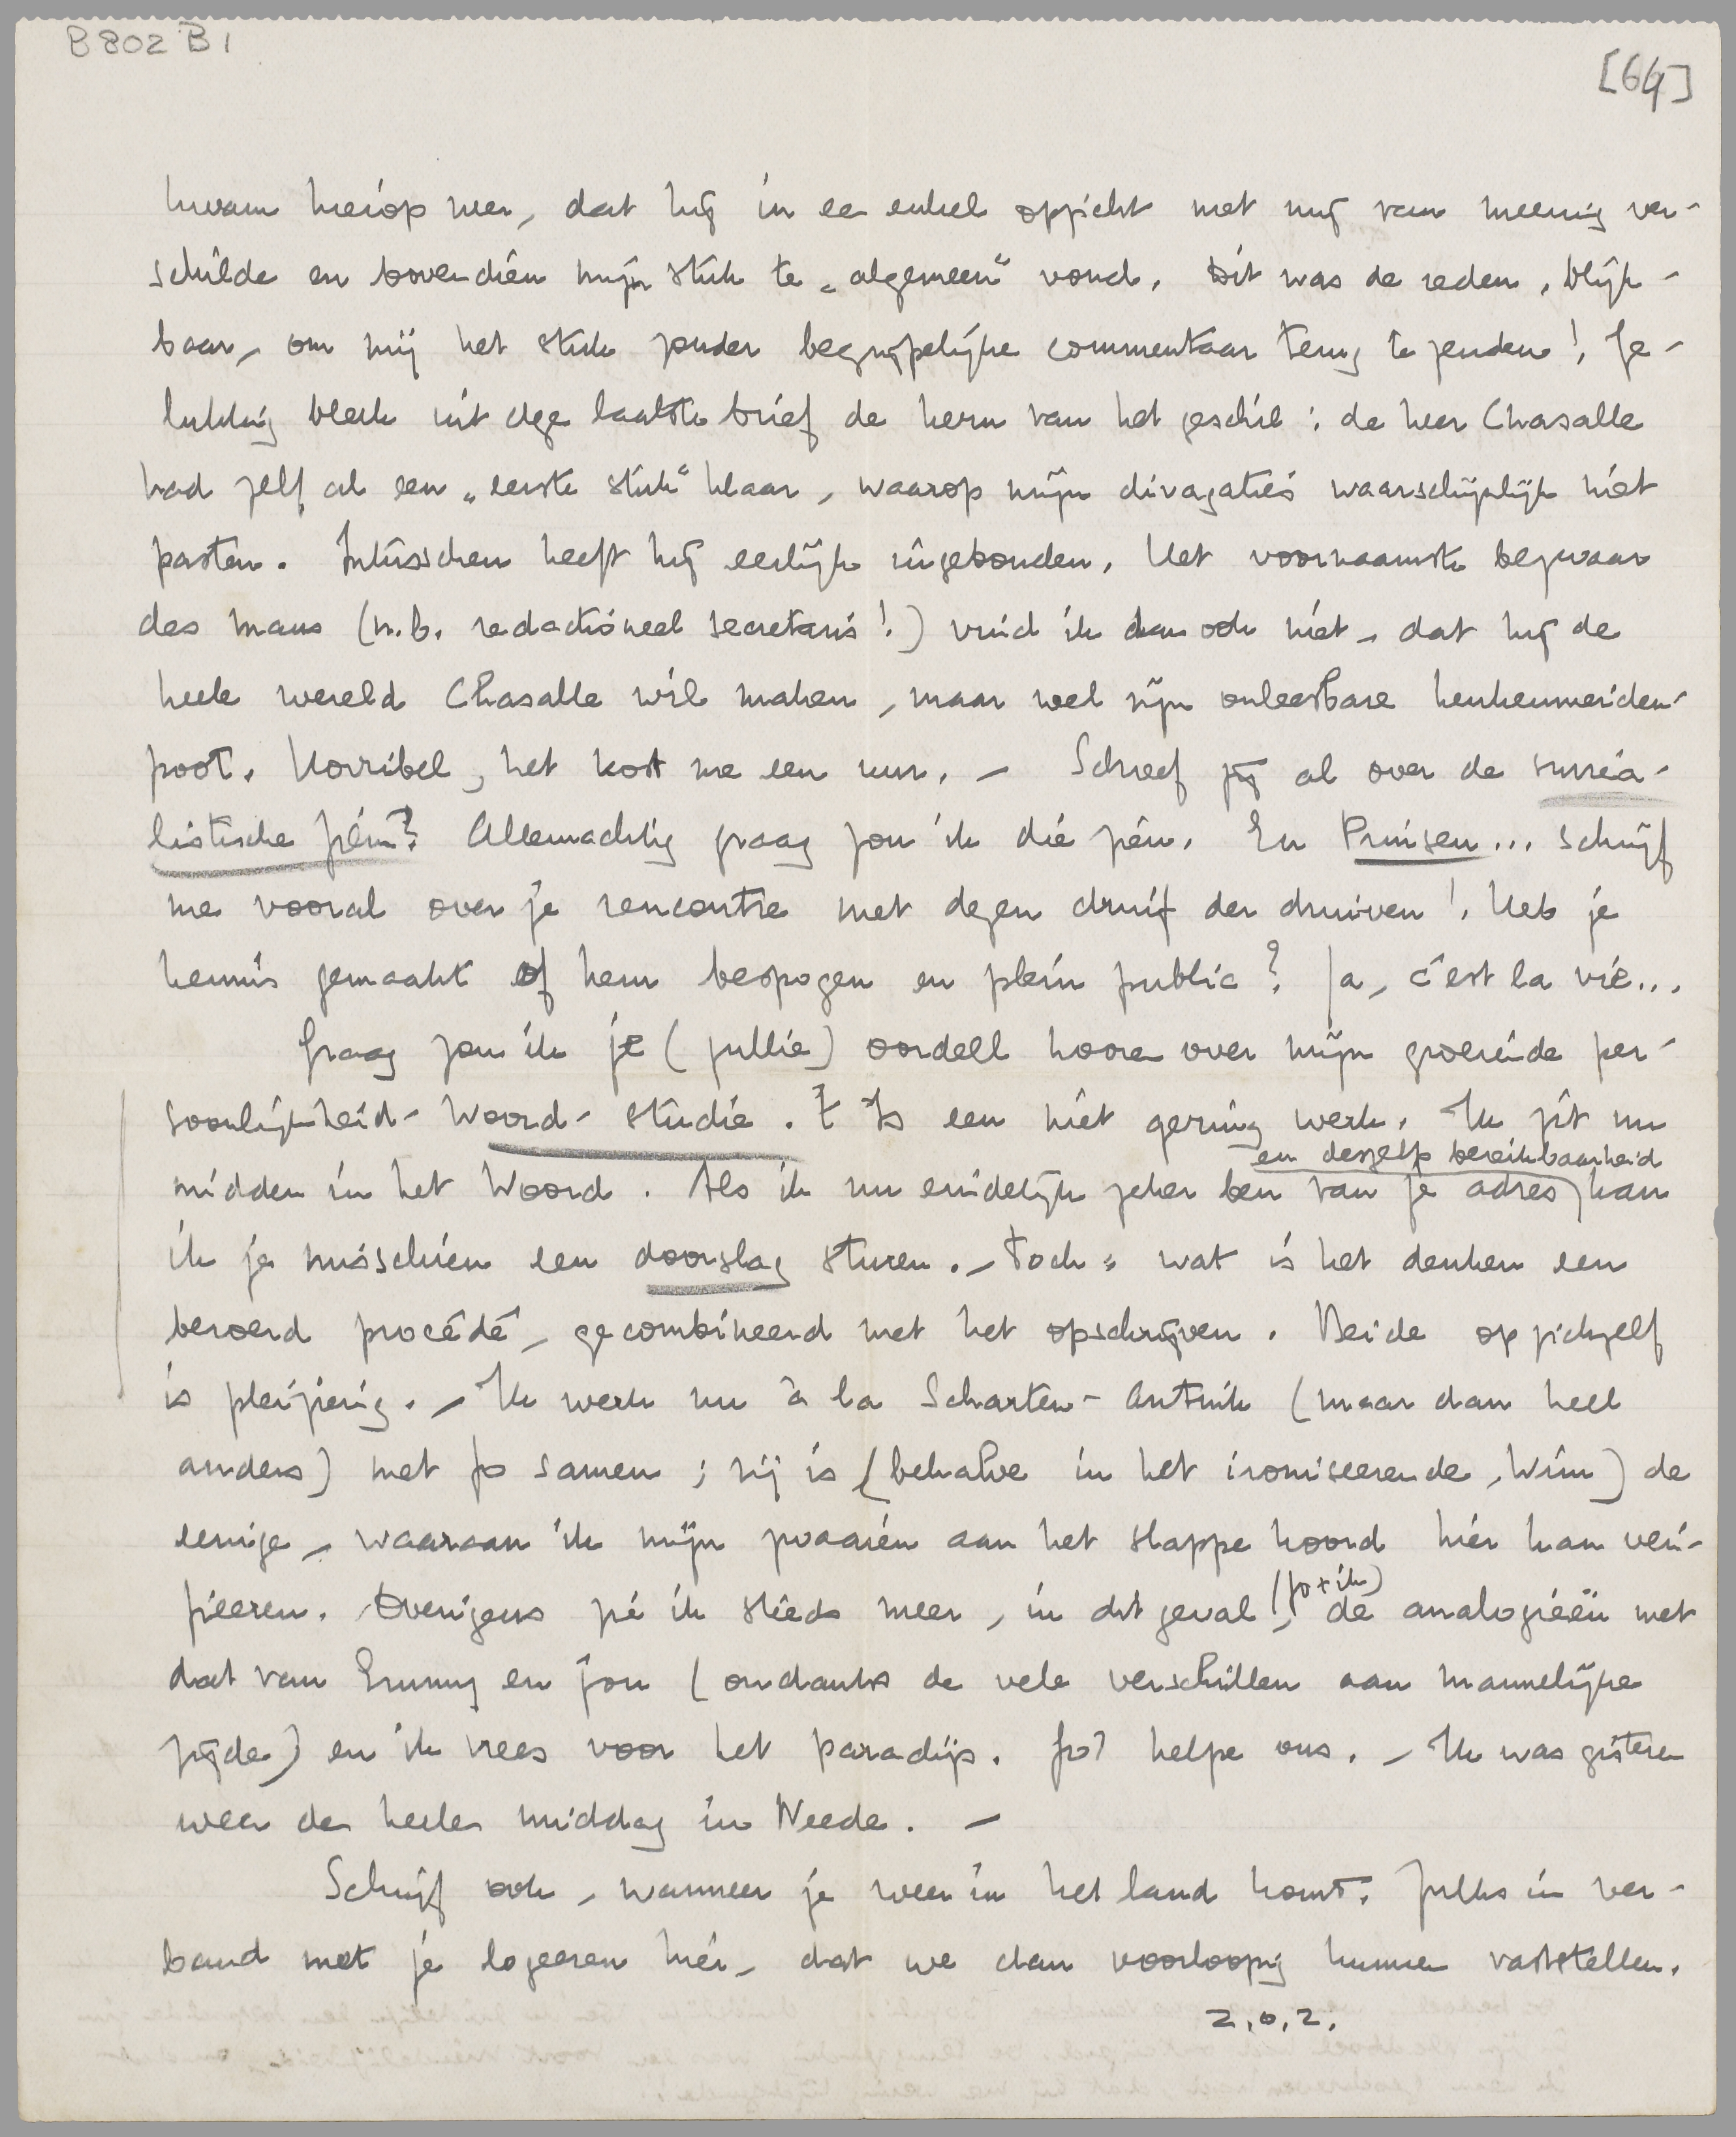 B 802 B 1
[64]
kwam hierop neer, dat hij in ee enkel opzicht met mij van meening ver-
schilde en bovendien mijn stuk te „algemeen" vond. Dit was de reden, blijk-
baar, om mij het stuk zonder begrijpelijke commentaar terug te zenden! Ge-
lukkig bleek uit deze laatste brief de kern van het geschil: de heer Chasalle
had zelf al een „eerste stuk" klaar, waarop mijn divagaties waarschijnlijk niet
pasten. Intusschen heeft hij eerlijk ingebonden. Het voornaamste bezwaar
des mans (n.b. redactioneel secretaris!) vind ik dan ook niet, dat hij de
heele wereld Chasalle wil maken, maar wel zijn onleesbare keukenmeiden-
poot. Horribel, het kost me een uur. — Schreef jij al over de surrea-
listische film? Allemachtig graag zou ik die zien. En Prinsen... schrijf
me vooral over je rencontre met dezen druif der druiven! Heb je
kennis gemaakt of hem bespogen en plein public? Ja, c'est la vie...
Graag zou ik je (jullie) oordeel hooren over mijn groeiende per-
soonlijkheid-Woord-studie. 't Is een niet gering werk. Ik zit nu
en deszelfs bereikbaarheid
midden in het Woord. Als ik nu eindelijk zeker ben van je adres, kan
ik je misschien een doorslag sturen. — Toch: wat is het denken een
beroerd procédé, gecombineerd met het opschrijven. Beide op zichzelf
is plezierig. — Ik werk nu à la Scharten-Antink (maar dan heel
anders) met Jo samen; zij is (behalve in het ironiseerende, Wim) de
eenige, waaraan ik mijn zwaaien aan het slappe koord hier kan veri-
(Jo + ik)
fieeren. Overigens zie ik steeds meer, in dit geval, de analogieën met
dat van Emmy en jou (ondanks de vele verschillen aan mannelijke
zijde) en ik vrees voor het paradijs. God helpe ons. — Ik was gisteren
weer de heelen middag in Neede. —
Schrijf ook, wanneer je weer in het land komt. Zulks in ver-
band met je logeeren hier, dat we dan voorloopig kunnen vaststellen.
Z.O.Z.